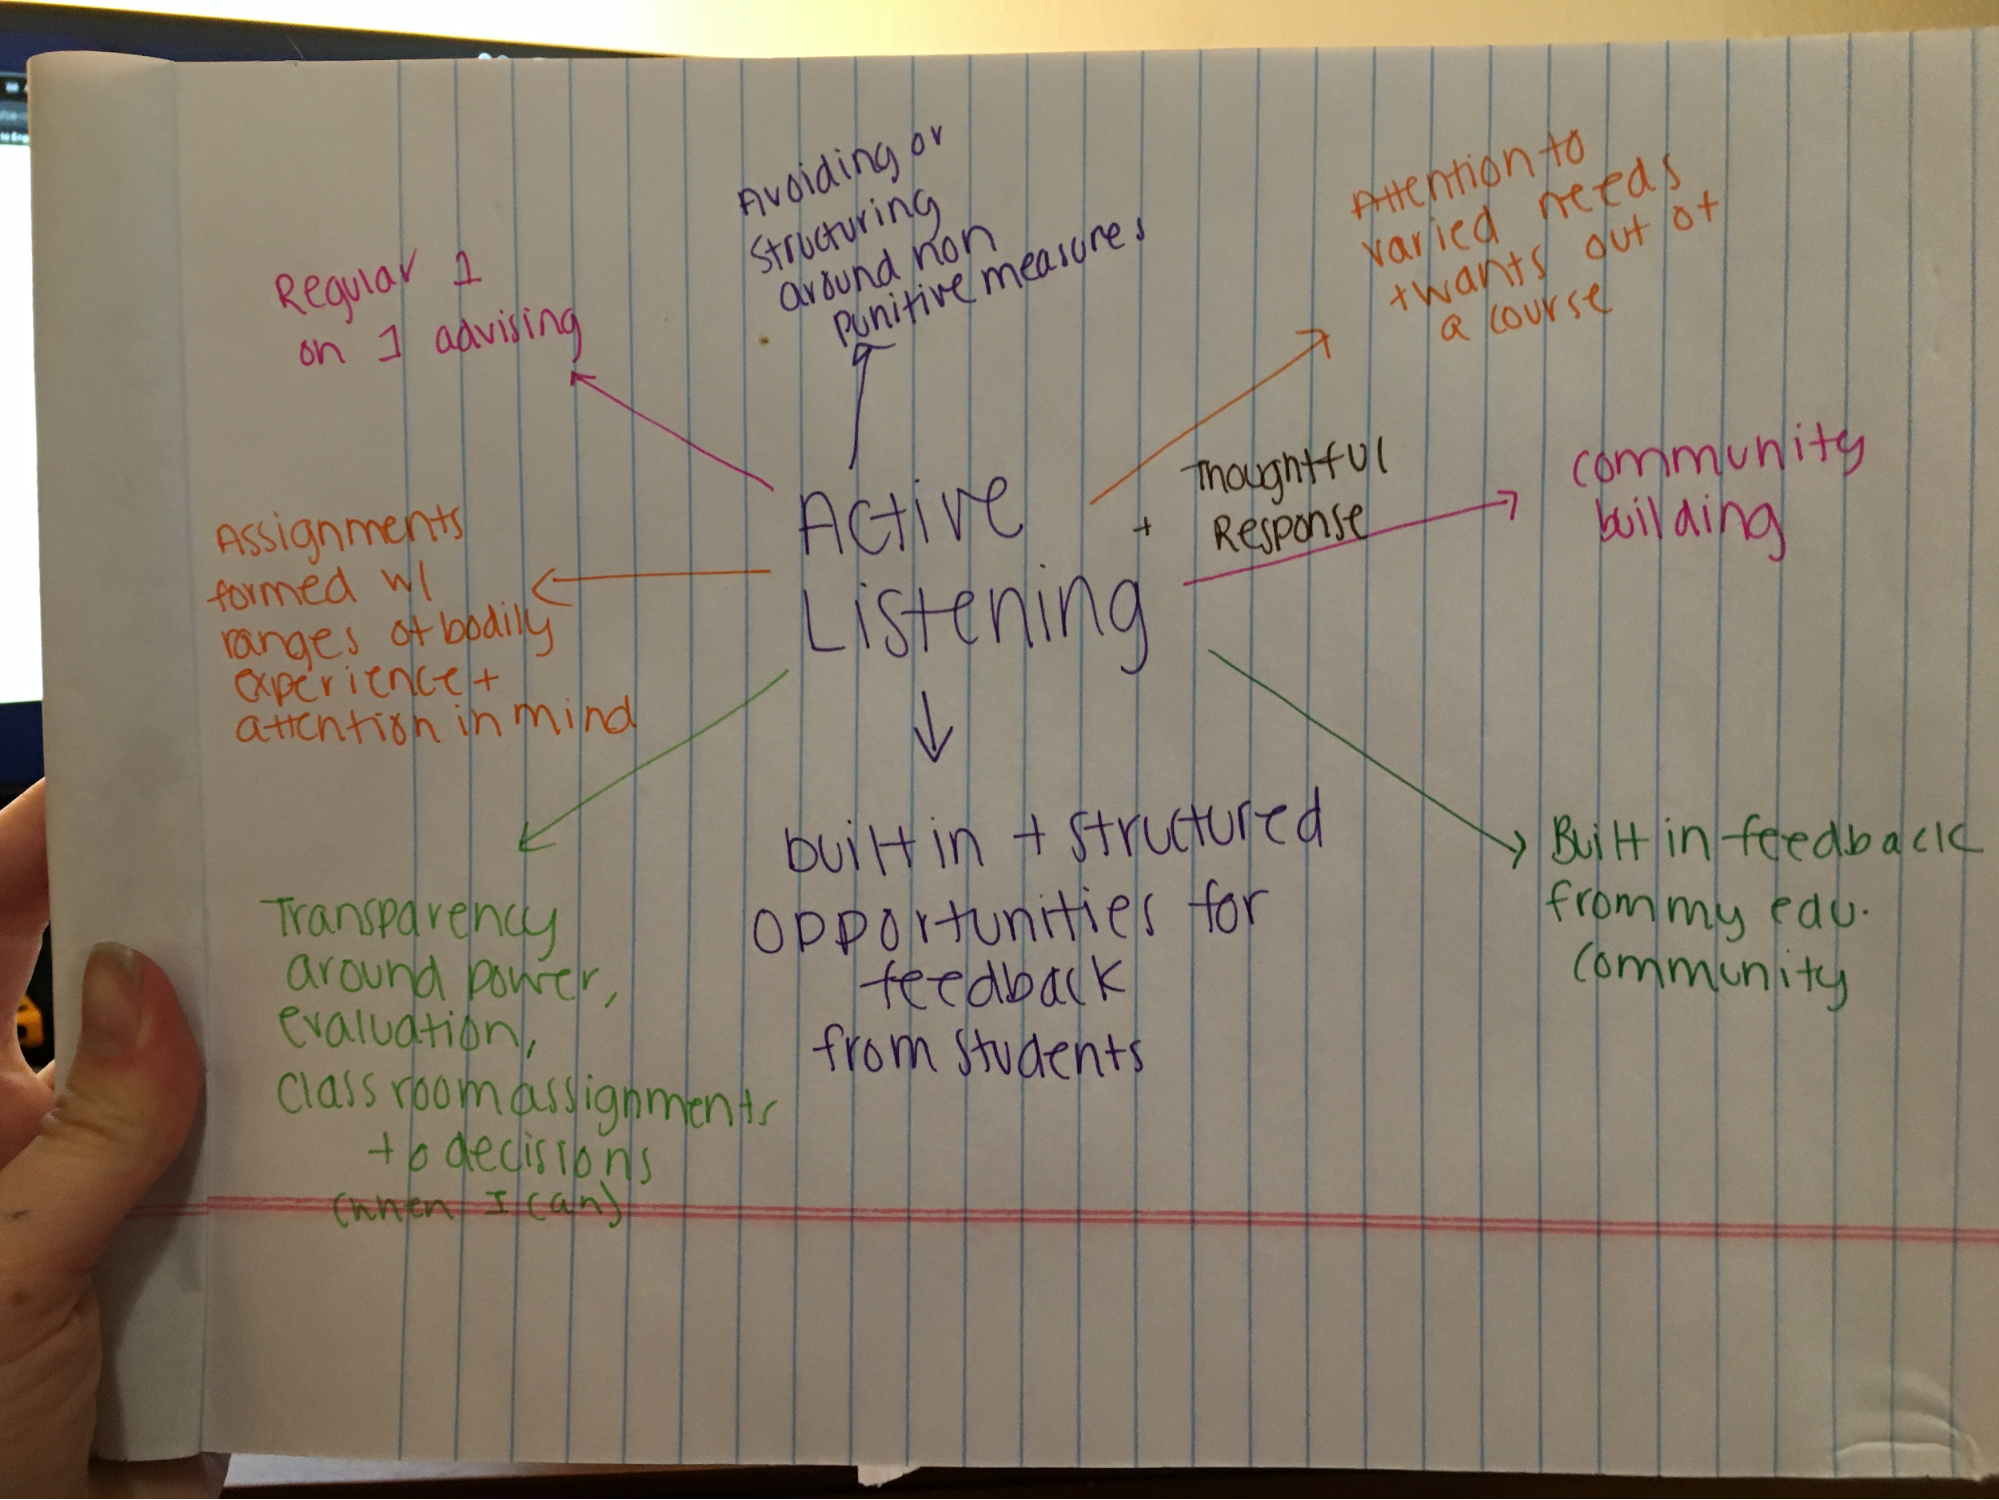 Avoiding or
structuring
around non
punitive measures
Attention to
varied needs
+ wants out of
a course
Regular 1
on 1 advising
Active
Listening
+
Thoughtful
Response
community
building
Assignments
formed w/
ranges of bodily
experience +
attention in mind
built in + structured
opportunities for
feedback
from students
Built in feedback
from my edu.
community
Transparency
around power,
evaluation,
classroom assignments
+ decisions
(when I can)